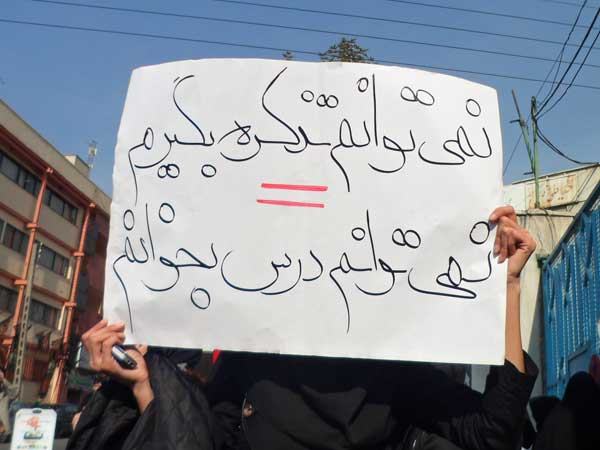 نمی توانم تذکره بگیرم
=
نمی توانم درس بخوانم